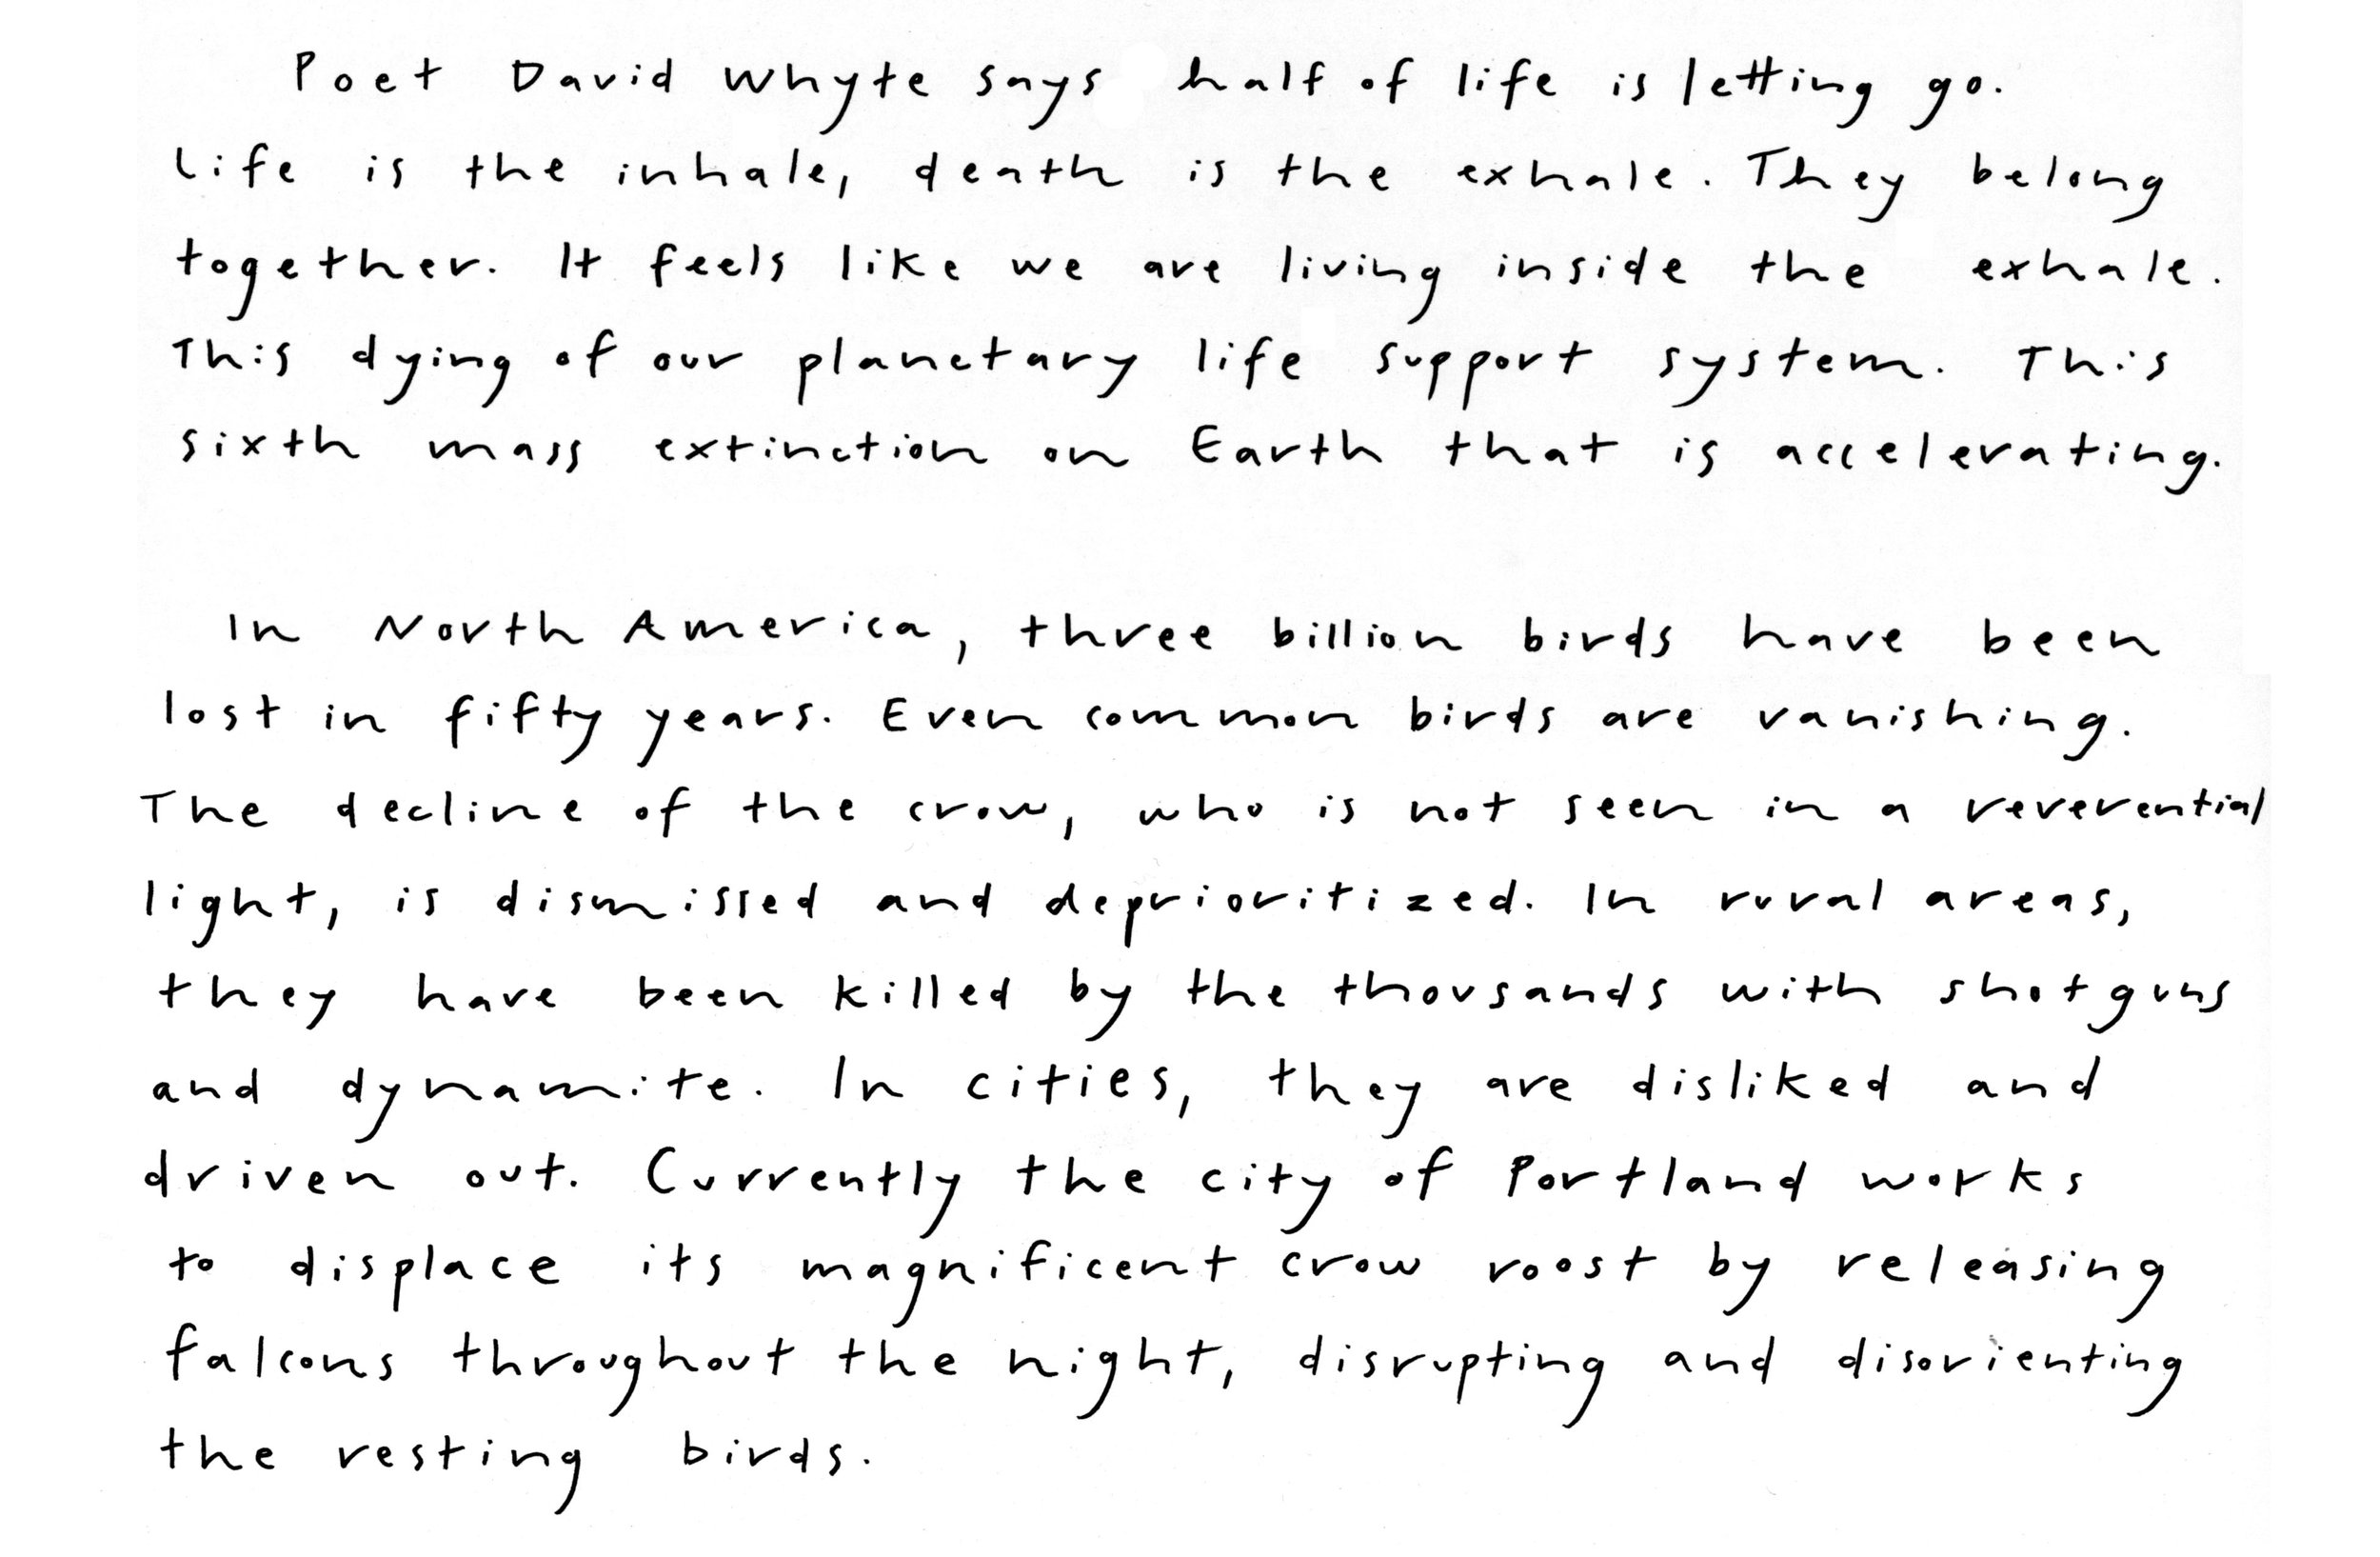 Poet David Whyte says half of life is letting go.
Life is the inhale, death is the exhale. They belong
together. It feels like we are living inside the exhale.
This dying of our planetary life support system. This
sixth mass extinction on Earth that is accelerating.
In North America, three billion birds have been
lost in fifty years. Even common birds are vanishing.
The decline of the crow, who is not seen in a reverential
light, is dismissed and deprioritized. In rural areas,
they have been killed by the thousands with shotguns
and dynamite. In cities, they are disliked and
driven out. Currently the city of Portland works
to displace its magnificent crow roost by releasing
falcons throughout the night, disrupting and disorienting
the resting birds.